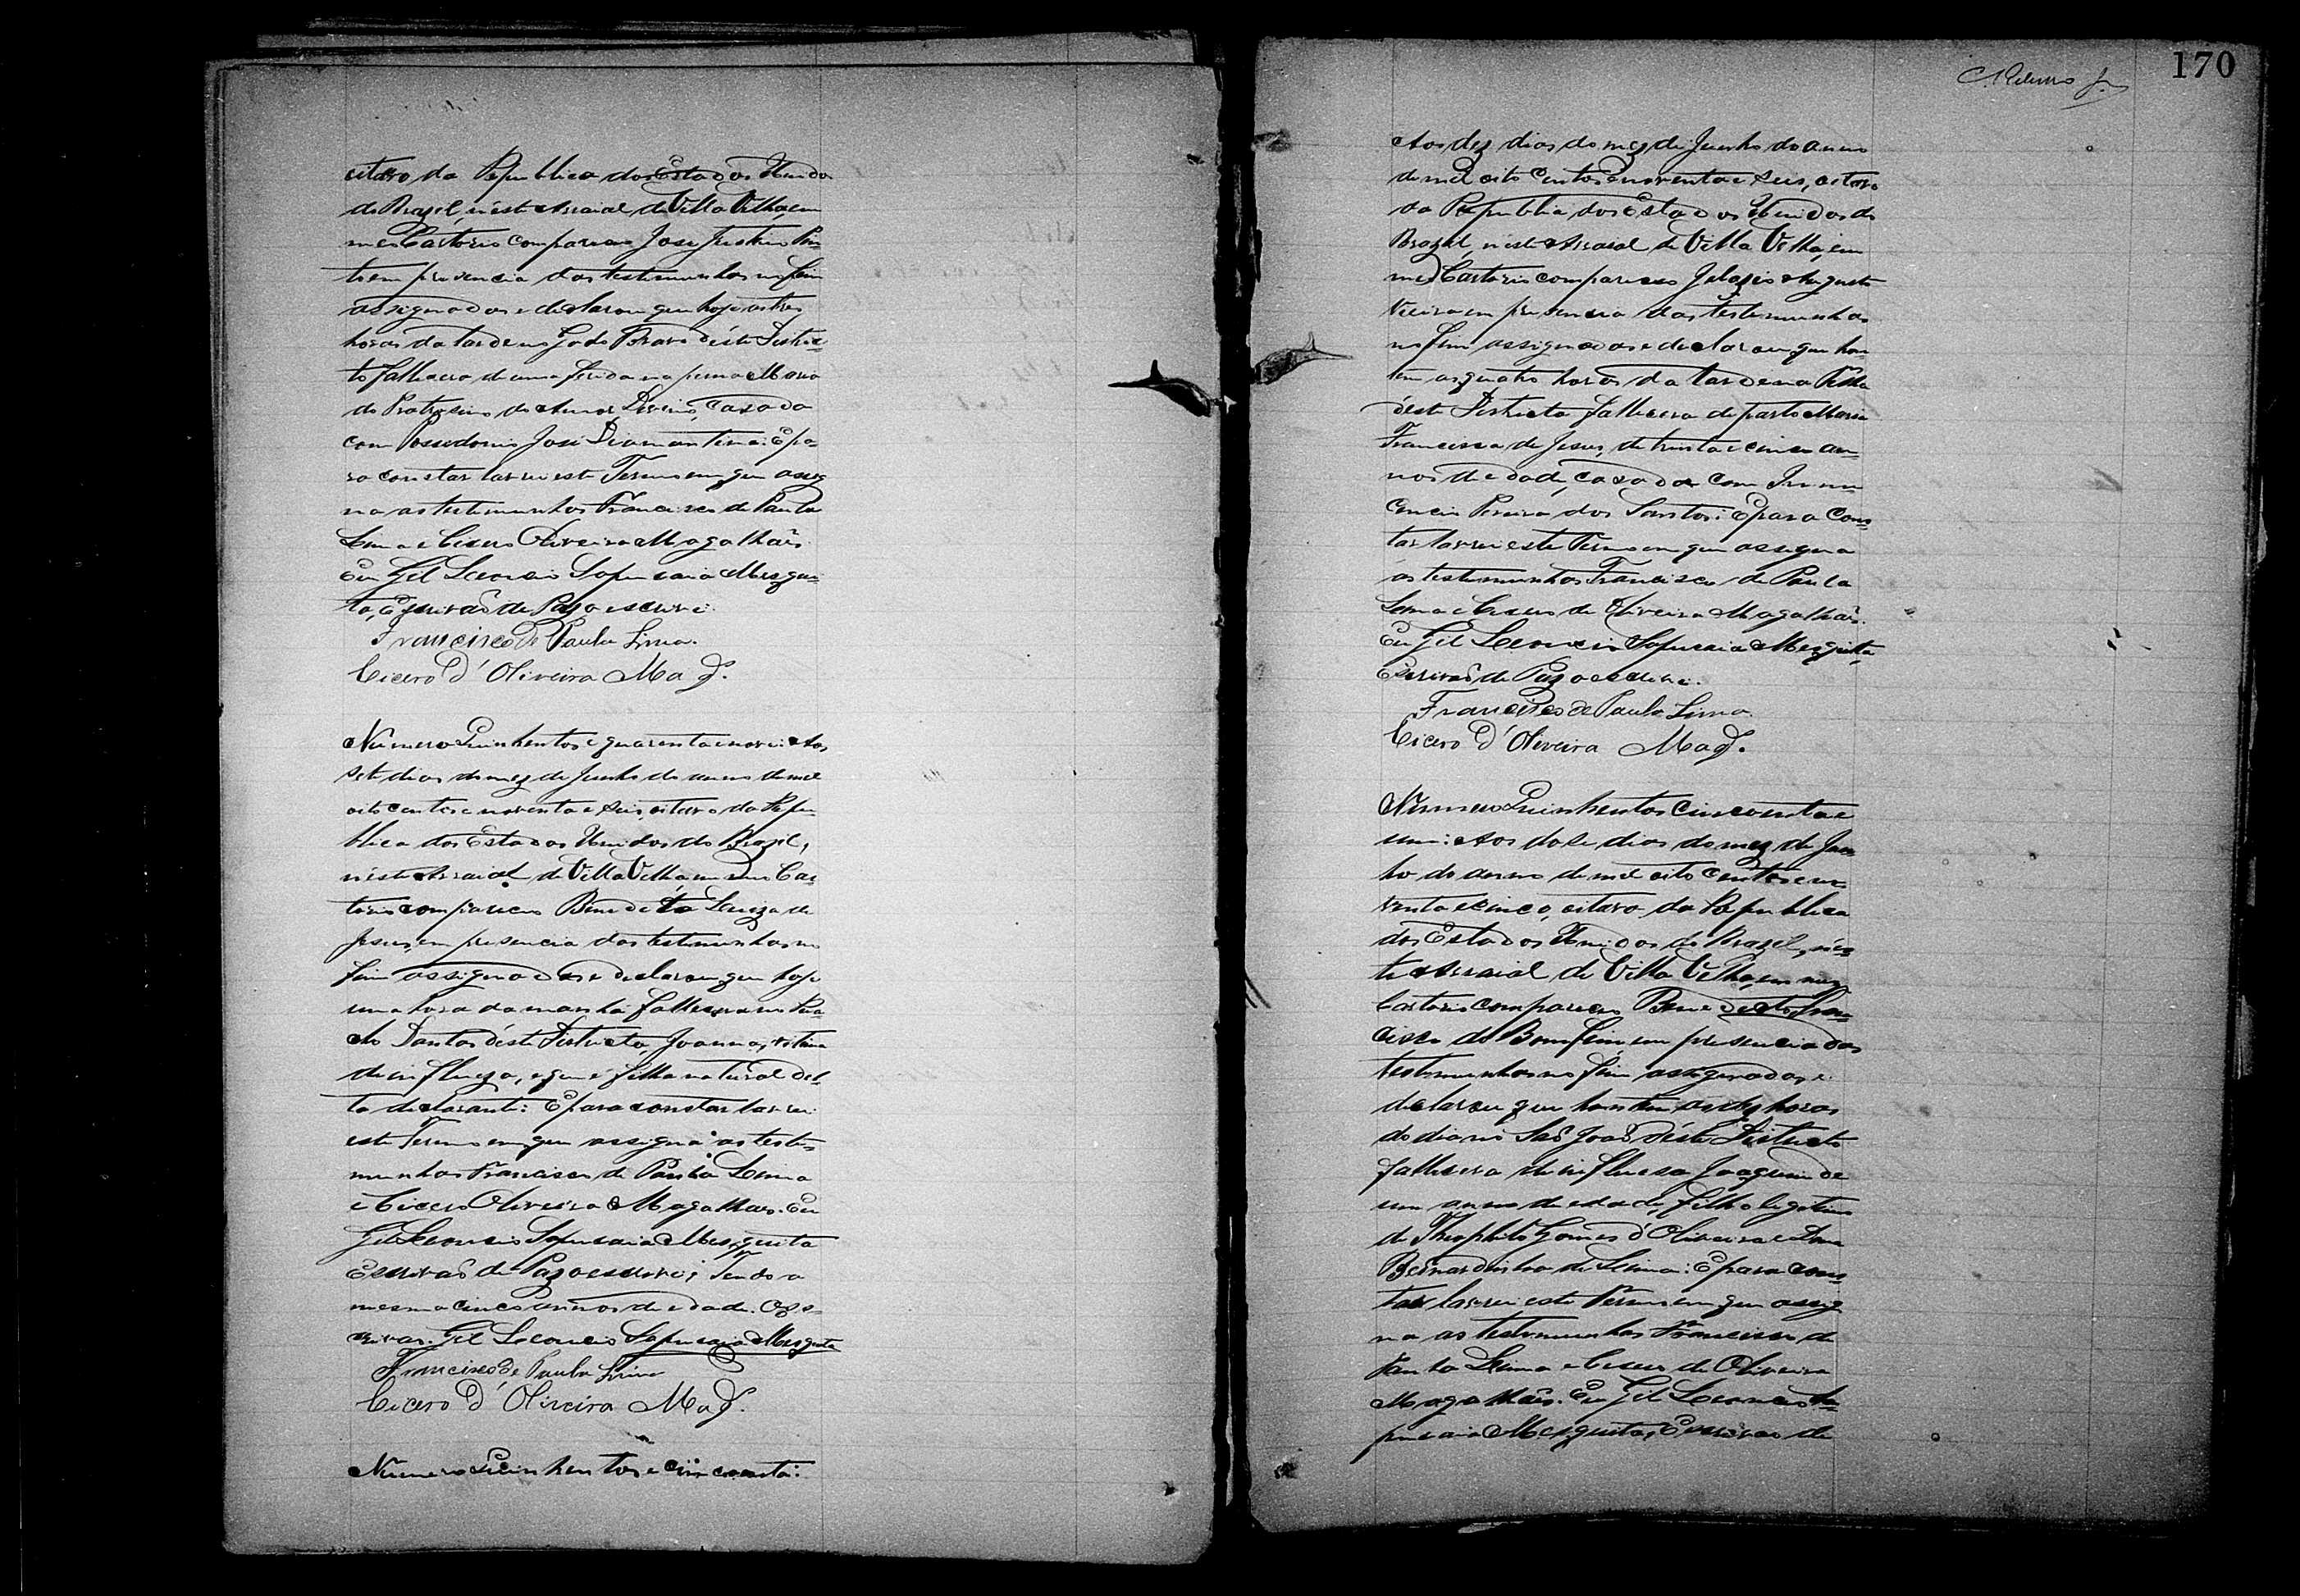 oitavo da Republica dos Estados Unidos
do Brazil, n'este Arraial de Villa Velha, em
meo Cartorio compareceo José Justino Pin-
to em presencia das testemunhas no fim
assignadas e declarou que hoje as tres
horas da tarde no Gado Bravo d'éste Distric-
to fallecera de uma ferida na perna Maria
do Patrocinio do Amor Divino, casada
com Possidonio José Diamantino: E pa-
ra constar lavrei este Termo em que assig
na as testemunhas Francisco de Paula
Lima e Cicero Oliveira Magalhães.
Eu Gil Leoncio Sapucaia Mesqui-
ta, Escrivaõ de Paz o escrevi.
Francisco de Paula Lima.
Cicero d'Oliveira Mag.
Numero Quinhentos e quarenta e nove: Aos
sete dias do mez de Junho do anno de mil
oito centos e noventa e seis, oitavo da Repu-
blica dos Estados Unidos do Brazil,
n'este Arraial de Villa Velha em meo Car-
torio compareceo Benedicta Luiza de
Jesus, em presencia das testemunhas no
fim assignadas e declarou que hoje
uma hora da manhã fallecera no
Dantas d'éste Districto, Joanna, victima
de influeza, e que é filha natural del-
ta declarante: E para constar lavrei
este Termo em que assigna as teste-
munhas Francisco de Paula Lima
e Cicero Oliveira Magalhães. Eu
Gil Leoncio Sapucaia Mesquita
Escrivaõ de Paz o escrevi; Tendo a
mesma cinco annos de edade. O Es-
crivaõ. Gil Leoncio Sapucaia Mesquita
Francisco de Paula Lima
Cicero d'Oliveira Mag.
Numero Quinhentos e cincoenta:
170
Aos dez dias do mez de Junho do anno
de mil oito centos e noventa e seis, oitavo
da Republica dos Estados Unidos do
Brazil, n'este Arraial de Villa Velha, em
meo Cartorio compareceo Gelasio Augusto
Vieira em presencia das testemunhas
no fim assignadas e declarou que hon
tem as quatro horas da tarde na
d'este Districto fallecera de parto Maria
Francisca de Jesus, de trinta e cinco an-
nos de edade, casada com Inno-
cencio Pereira dos Santos: E para cons-
tar lavrei este Termo em que assigna
as testemunhas Francisco de Paula
Lima e Cicero de Oliveira Magalhães.
Eu Gil Leoncio Sapucaia Mesquita,
Escrivaõ de Paz o escrevi.
Francisco de Paula Lima.
Cicero d'Oliveira Mag.
Numero Quinhentos cincoenta e
um: Aos dose dias do mez de Jun
ho do anno de mil oito centos e no-
venta e cinco, oitavo da Republica
dos Estados Unidos do Brazil, n'es-
te Arraial de Villa Velha, em meo
Cartorio compareceo Benedicto Fran-
cisco do Bomfim em presencia das
testemunhas no fim assignadas e
declarou que hontem as dez horas
do dia no Saõ Joaõ d'éste Districto
fallecera de influesa Joaquim de
um anno de edade, filho legitimo
de Theophilo Gomes d'Oliveira e Dona
Bernardinha de Lima: E para cons-
tar lavrei este Termo em que assig
na as testemunhas Francisco de
Paula Lima e Cicero de Oliveira
Magalhães. Eu Gil Leoncio Sa-
pucaia Mesquita, Escrivaõ de